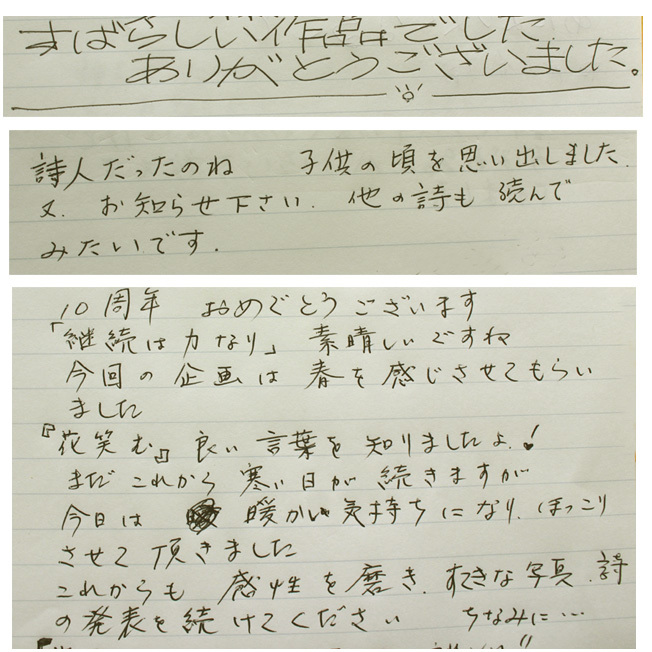 すばらしい作品でした。
ありがとうございました。
詩人だったのね 子供の頃を思い出しました.
又. お知らせ下さい. 他の詩も 読んで
みたいです.
10周年 おめでとうございます
「継続は力なり」 素晴しいですね
今回の企画は 春を感じさせてもらい
ました
『花笑む』良い言葉を知りましたよ.!
まだこれから 寒い日が続きますが
今日は 暖かい気持ちになり. ほっこり
させて頂きました
これからも 感性を磨き. すてきな写真. 詩
の発表を続けてください ちなみに…